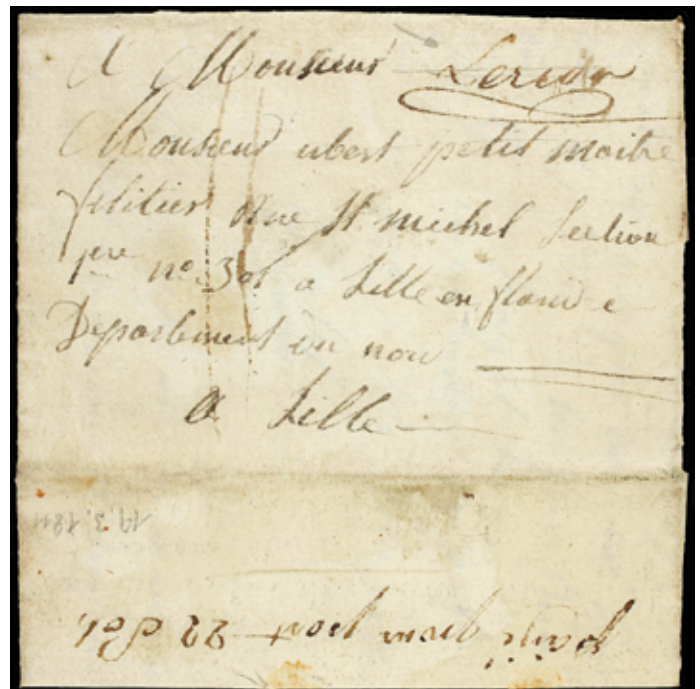 A Monsieur
Monsieur ubert petit maitre
filitier Rue St michel Section
1ere no 301 a Lille en flandre
Departement du nord
a Lille
19.3.1811
payé pour port 22 Sols